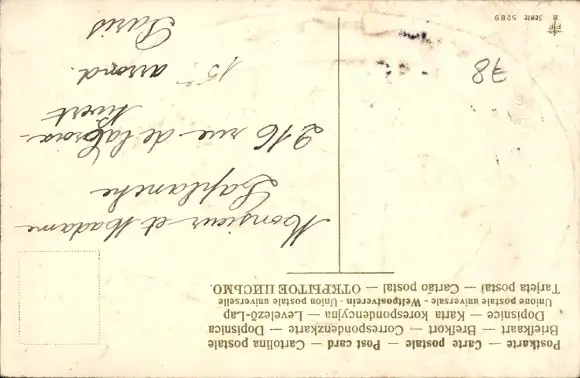 Postkarte — Carte postale — Post card — Cartolina postale
Briefkaart — Brefkort — Correspondenzkarte — Dopisnica
Dopisnice — Karta korespondencyjna — Levelező-Lap
Unione postale universale - Weltpostverein - Union postale universelle
Tarjeta postal — Cartão postal — ОТКРЫТОЕ ПИСЬМО.
Monsieur et Madame
Laplanche
216 rue de la Croix-
Nivert
15e arrond.
Paris
78
B Serie 5289